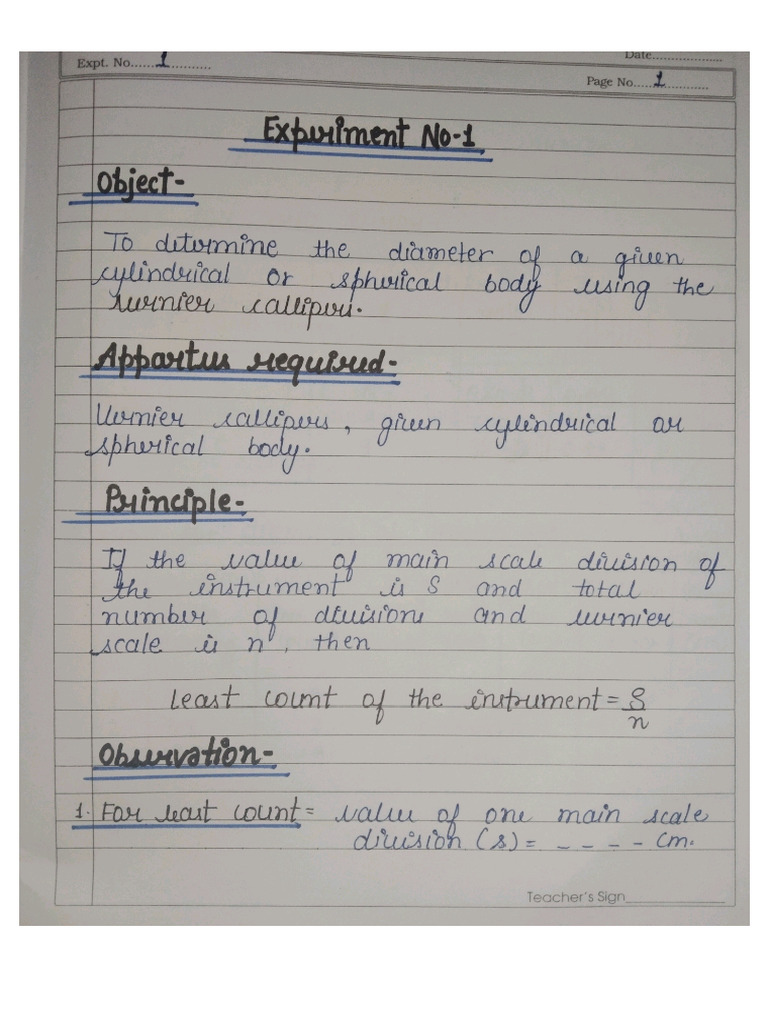 Expt. No......1...........
Date...................
Page No......1............
Experiment No-1
Object-
To determine the diameter of a given
cylindrical or spherical body using the
vernier callipers.
Appartus required-
Vernier callipers, given cylindrical or
spherical body.
Principle-
If the value of main scale division of
the instrument is S and total
number of divisions and vernier
scale is n, then
least count of the instrument = S/n
Observation-
1. For least count = value of one main scale
division (s) = - - - - cm.
Teacher's Sign